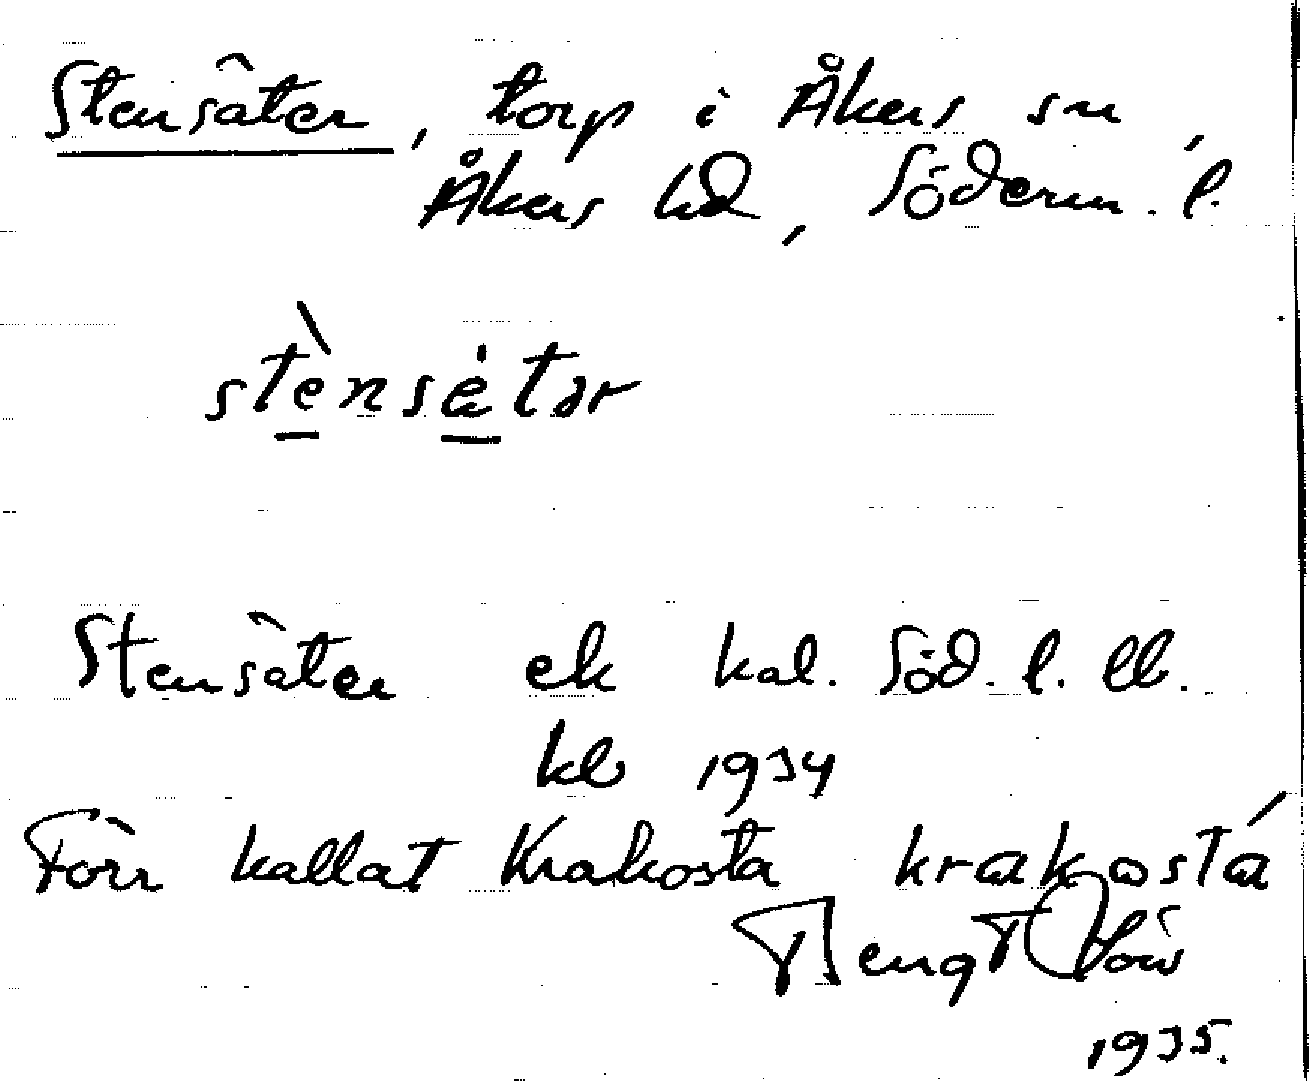 Stensäter, torp i Åkers sn,
Åkers hd, Söderm. l.
stènsätər
Stensäter ek kal. Söd. l. ll.
kb 1934
Förr kallat Krakosta krakosta
Bengt
1935.